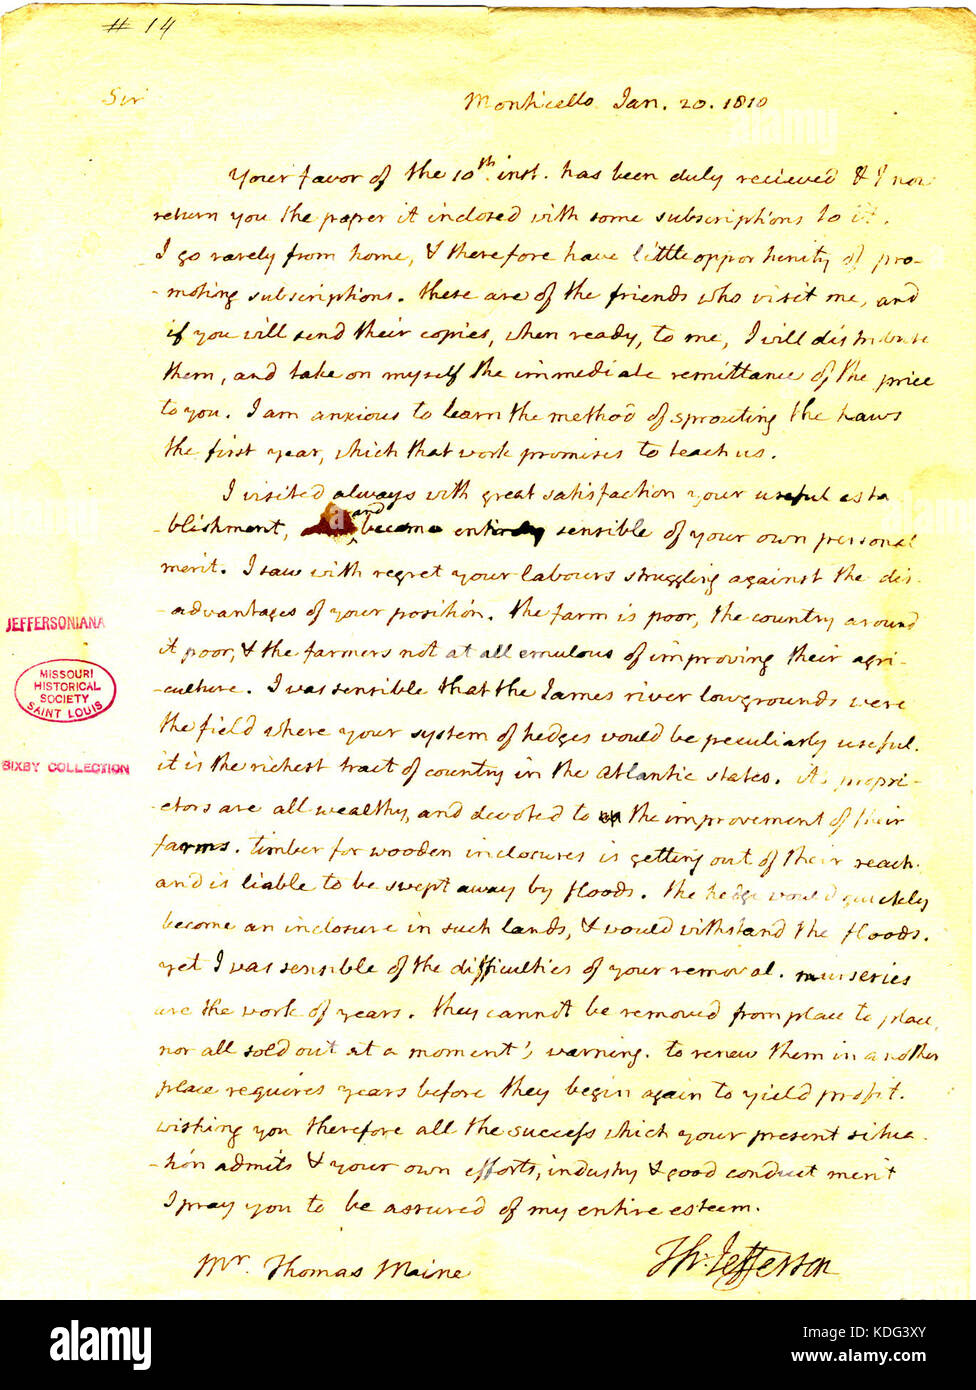 # 14
Sir
Monticello Jan. 20. 1810
Your favor of the 10th inst. has been duly recieved & I now
return you the paper it inclosed with some subscriptions to it.
I go rarely from home, & therefore have little opportunity of pro-
-moting subscriptions. these are of the friends who visit me, and
if you will send their copies, when ready, to me, I will distribute
them, and take on myself the immediate remittance of the price
to you. I am anxious to learn the method of sprouting the haws
the first year, which that work promises to teach us.
I visited always with great satisfaction your useful esta
-blishment, and became entirely sensible of your own personal
merit. I saw with regret your labours struggling against the dis-
-advantages of your position. the farm is poor, the country around
it poor, & the farmers not at all emulous of improving their agri-
-culture. I was sensible that the James river lowgrounds were
the field where your system of hedges would be peculiarly useful.
it is the richest tract of country in the Atlantic states. it's propri-
-etors are all wealthy, and devoted to the improvement of their
farms. timber for wooden inclosures is getting out of their reach.
and is liable to be swept away by floods. the hedge would quickly
become an inclosure in such lands, & would withstand the floods.
yet I was sensible of the difficulties of your removal. nurseries
are the work of years. they cannot be removed from place to place,
nor all sold out at a moment's warning. to renew them in another
place requires years before they begin again to yield profit.
wishing you therefore all the success which your present situa-
-tion admits & your own efforts, industry & good conduct merit
I pray you to be assured of my entire esteem.
Th: Jefferson
Mr. Thomas Maine
JEFFERSONIANA
MISSOURI
HISTORICAL
SOCIETY
SAINT LOUIS
BIXBY COLLECTION
alamy
Image ID: KDG3XY
www.alamy.com